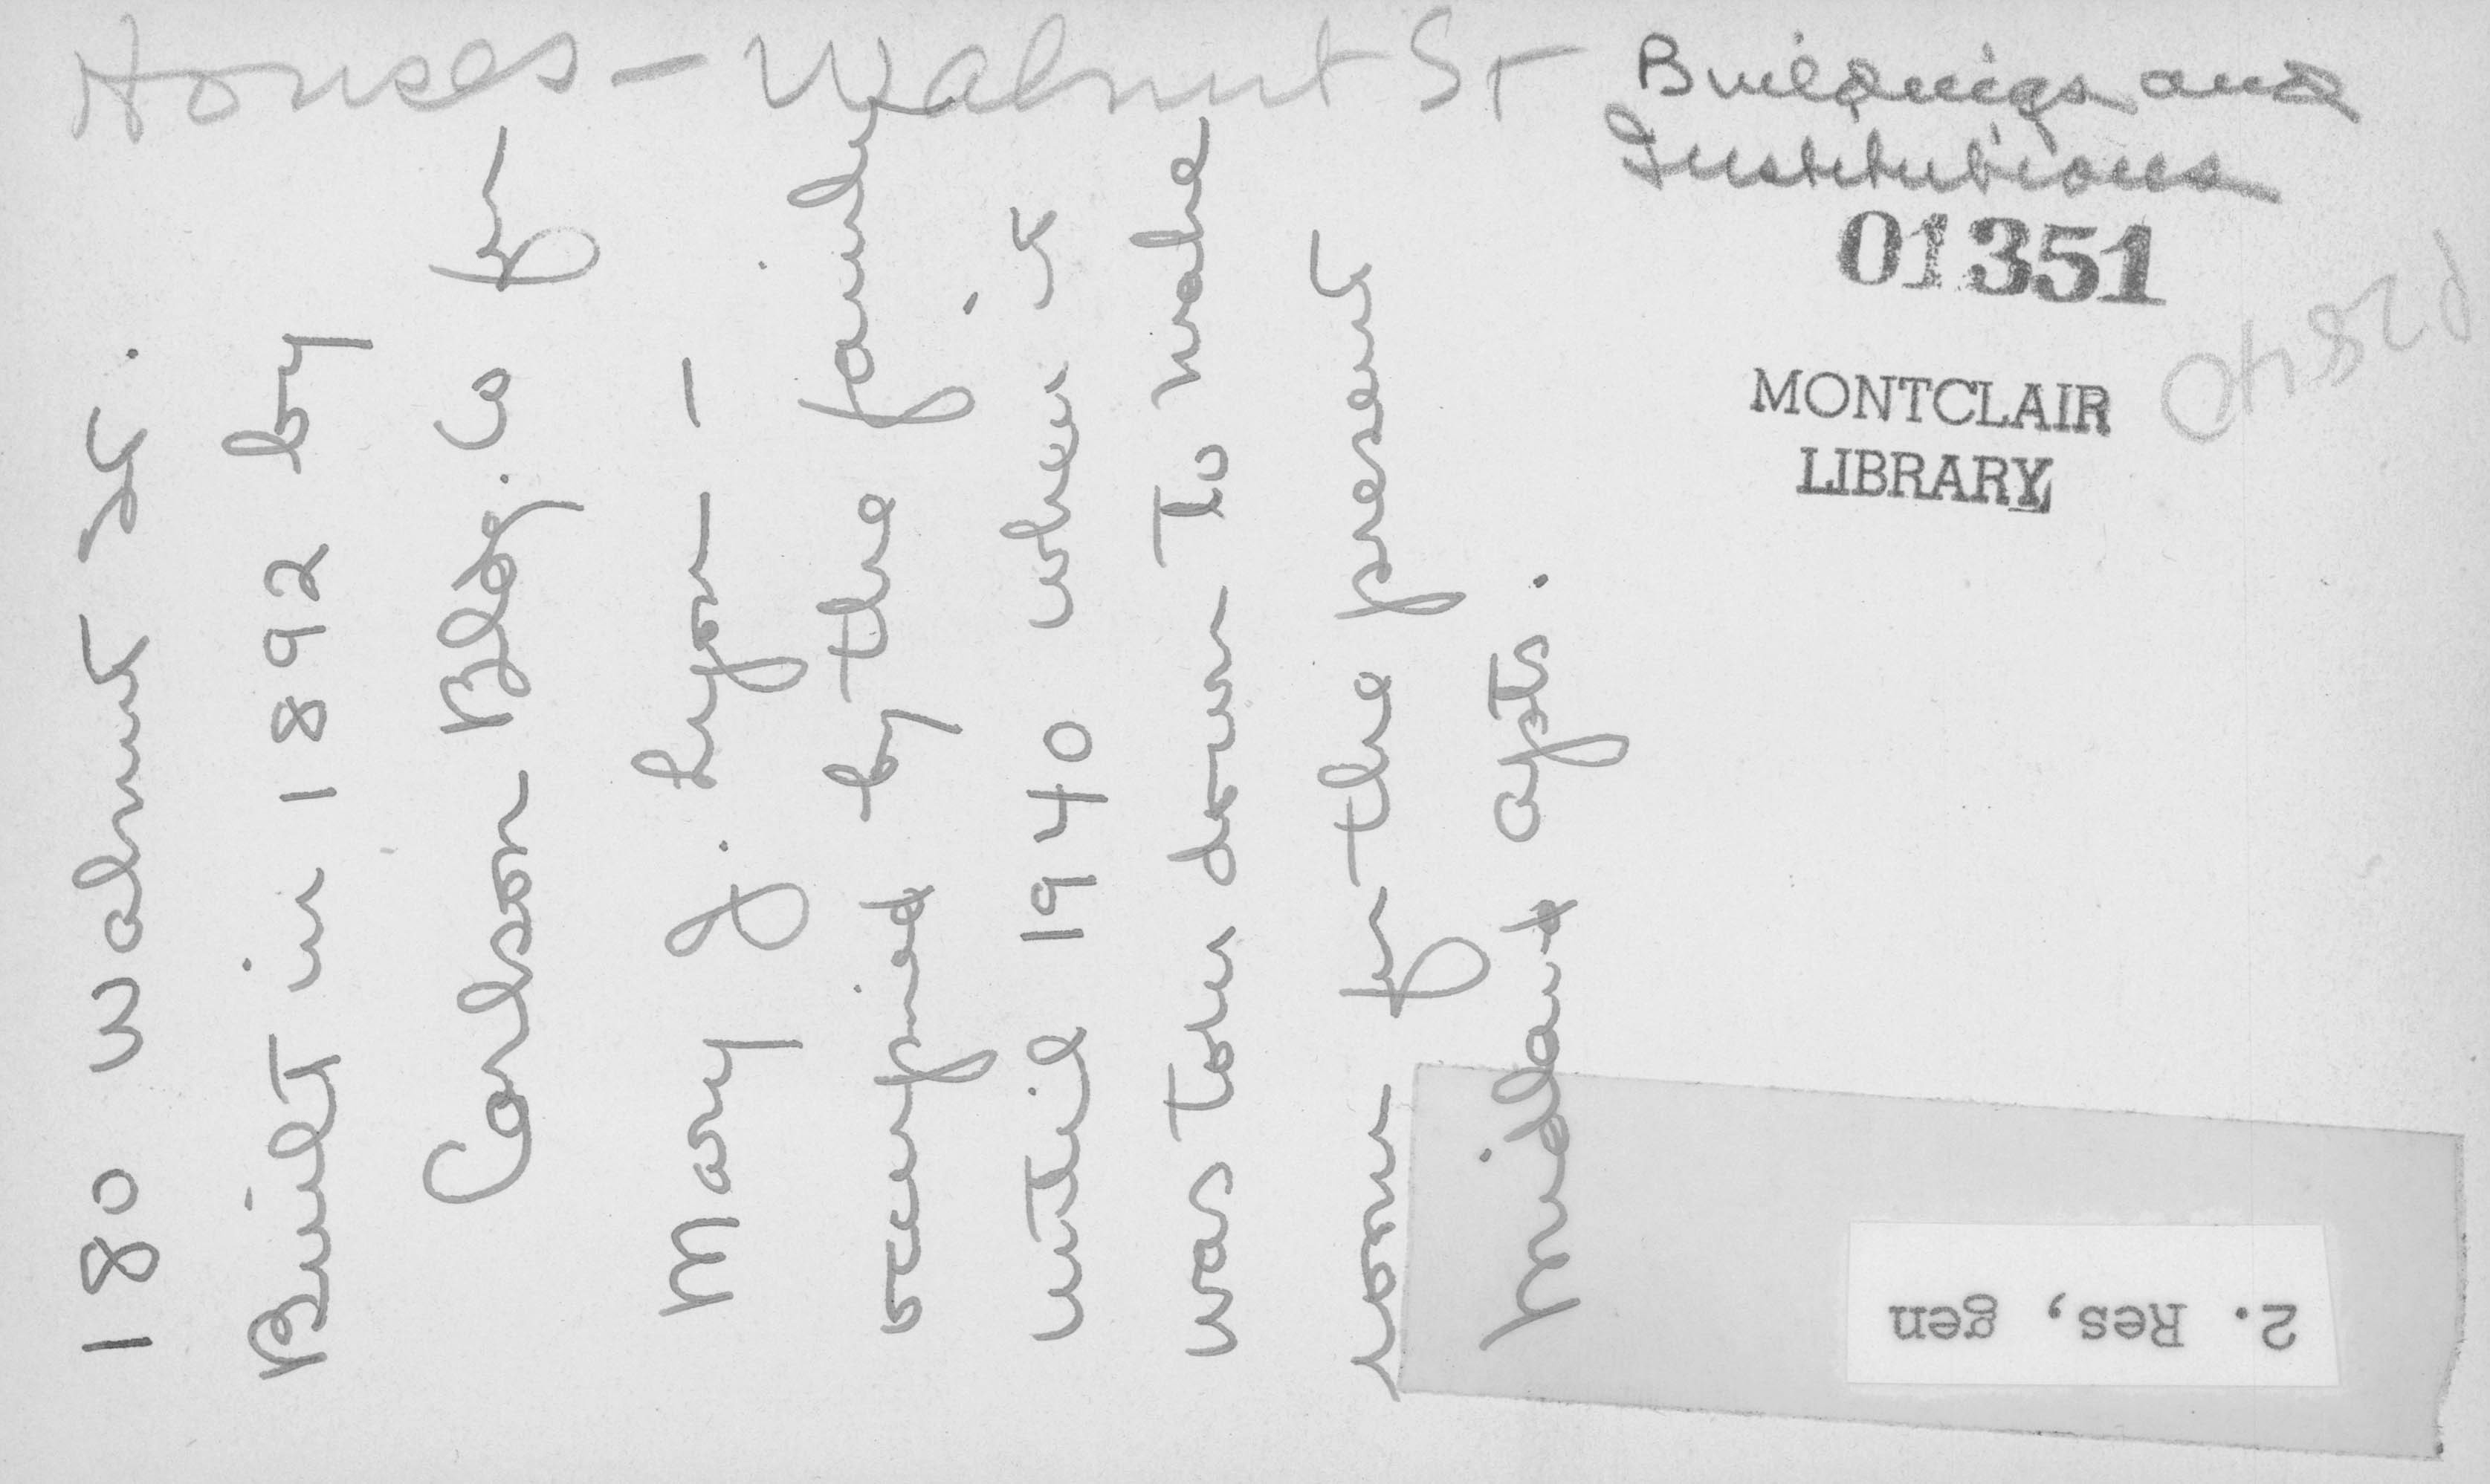 Houses - Walnut St
Buildings and
Institutions
01351
MONTCLAIR
LIBRARY
180 Walnut St.
Built in 1892 by
Carlson Bldg. Co for
Mary J. Lyon -
occupied by the family
until 1940 when it
was torn down to make
room for the present
Midland apts.
2. Res, gen